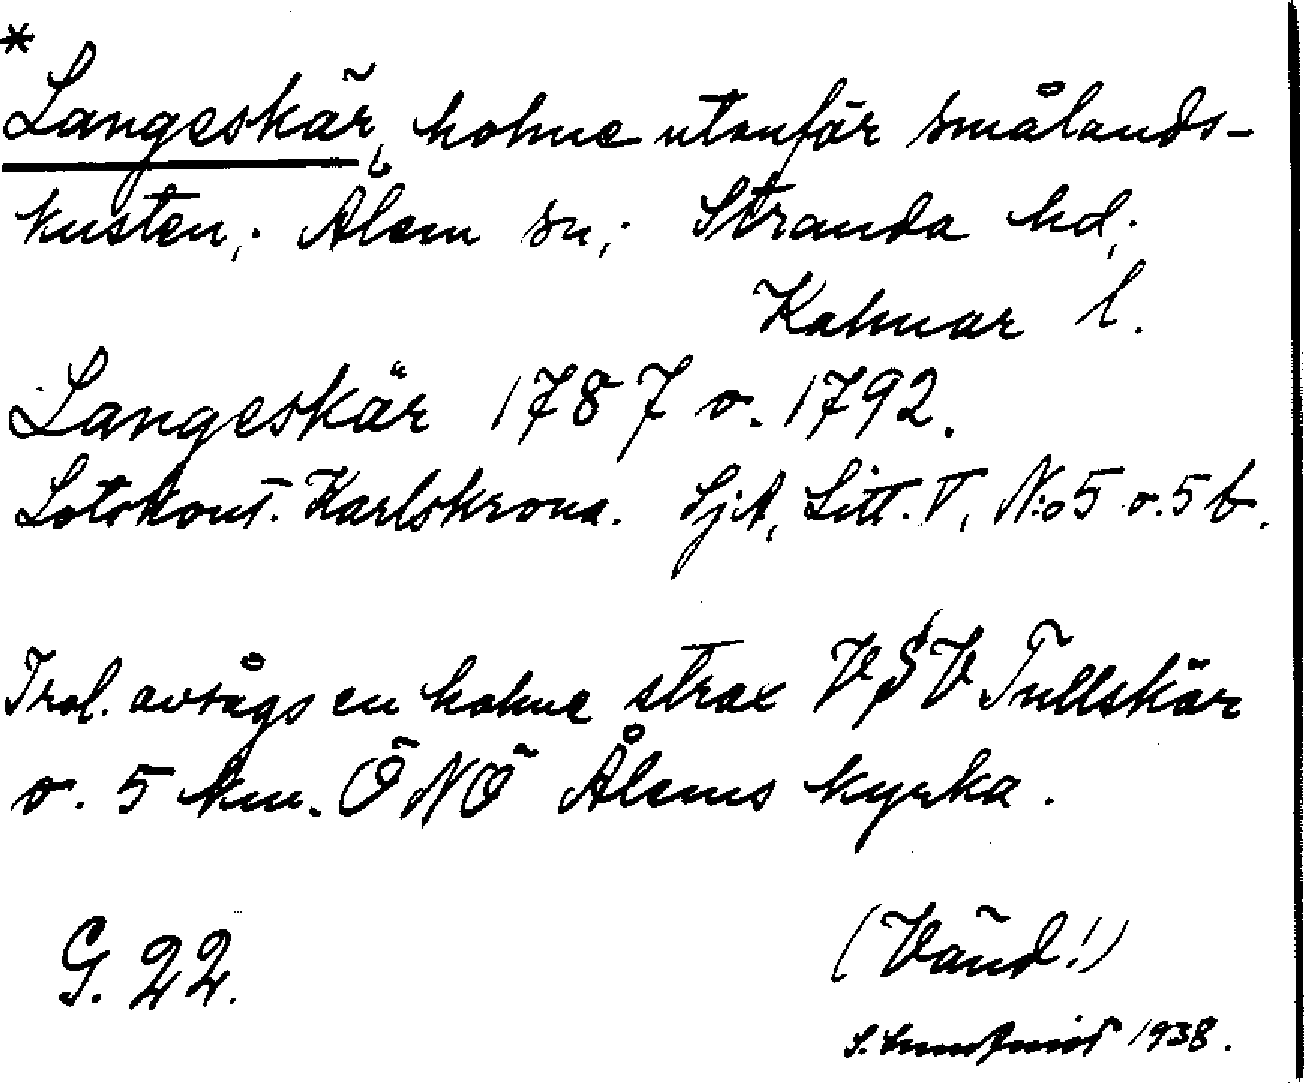 *
Langeskär, holme utanför Smålands-
kusten; Ålem sn; Stranda hd;
Kalmar l.
Langeskär 1787 o. 1792.
Lotskont. Karlskrona. SjA, Litt. V, N:o 5 o. 5 b.
Trol. avsågs en holme strax VSV Tullskär
o. 5 km. ÖNÖ Ålems kyrka.
G. 22.
(Vänd!)
S. 1938.